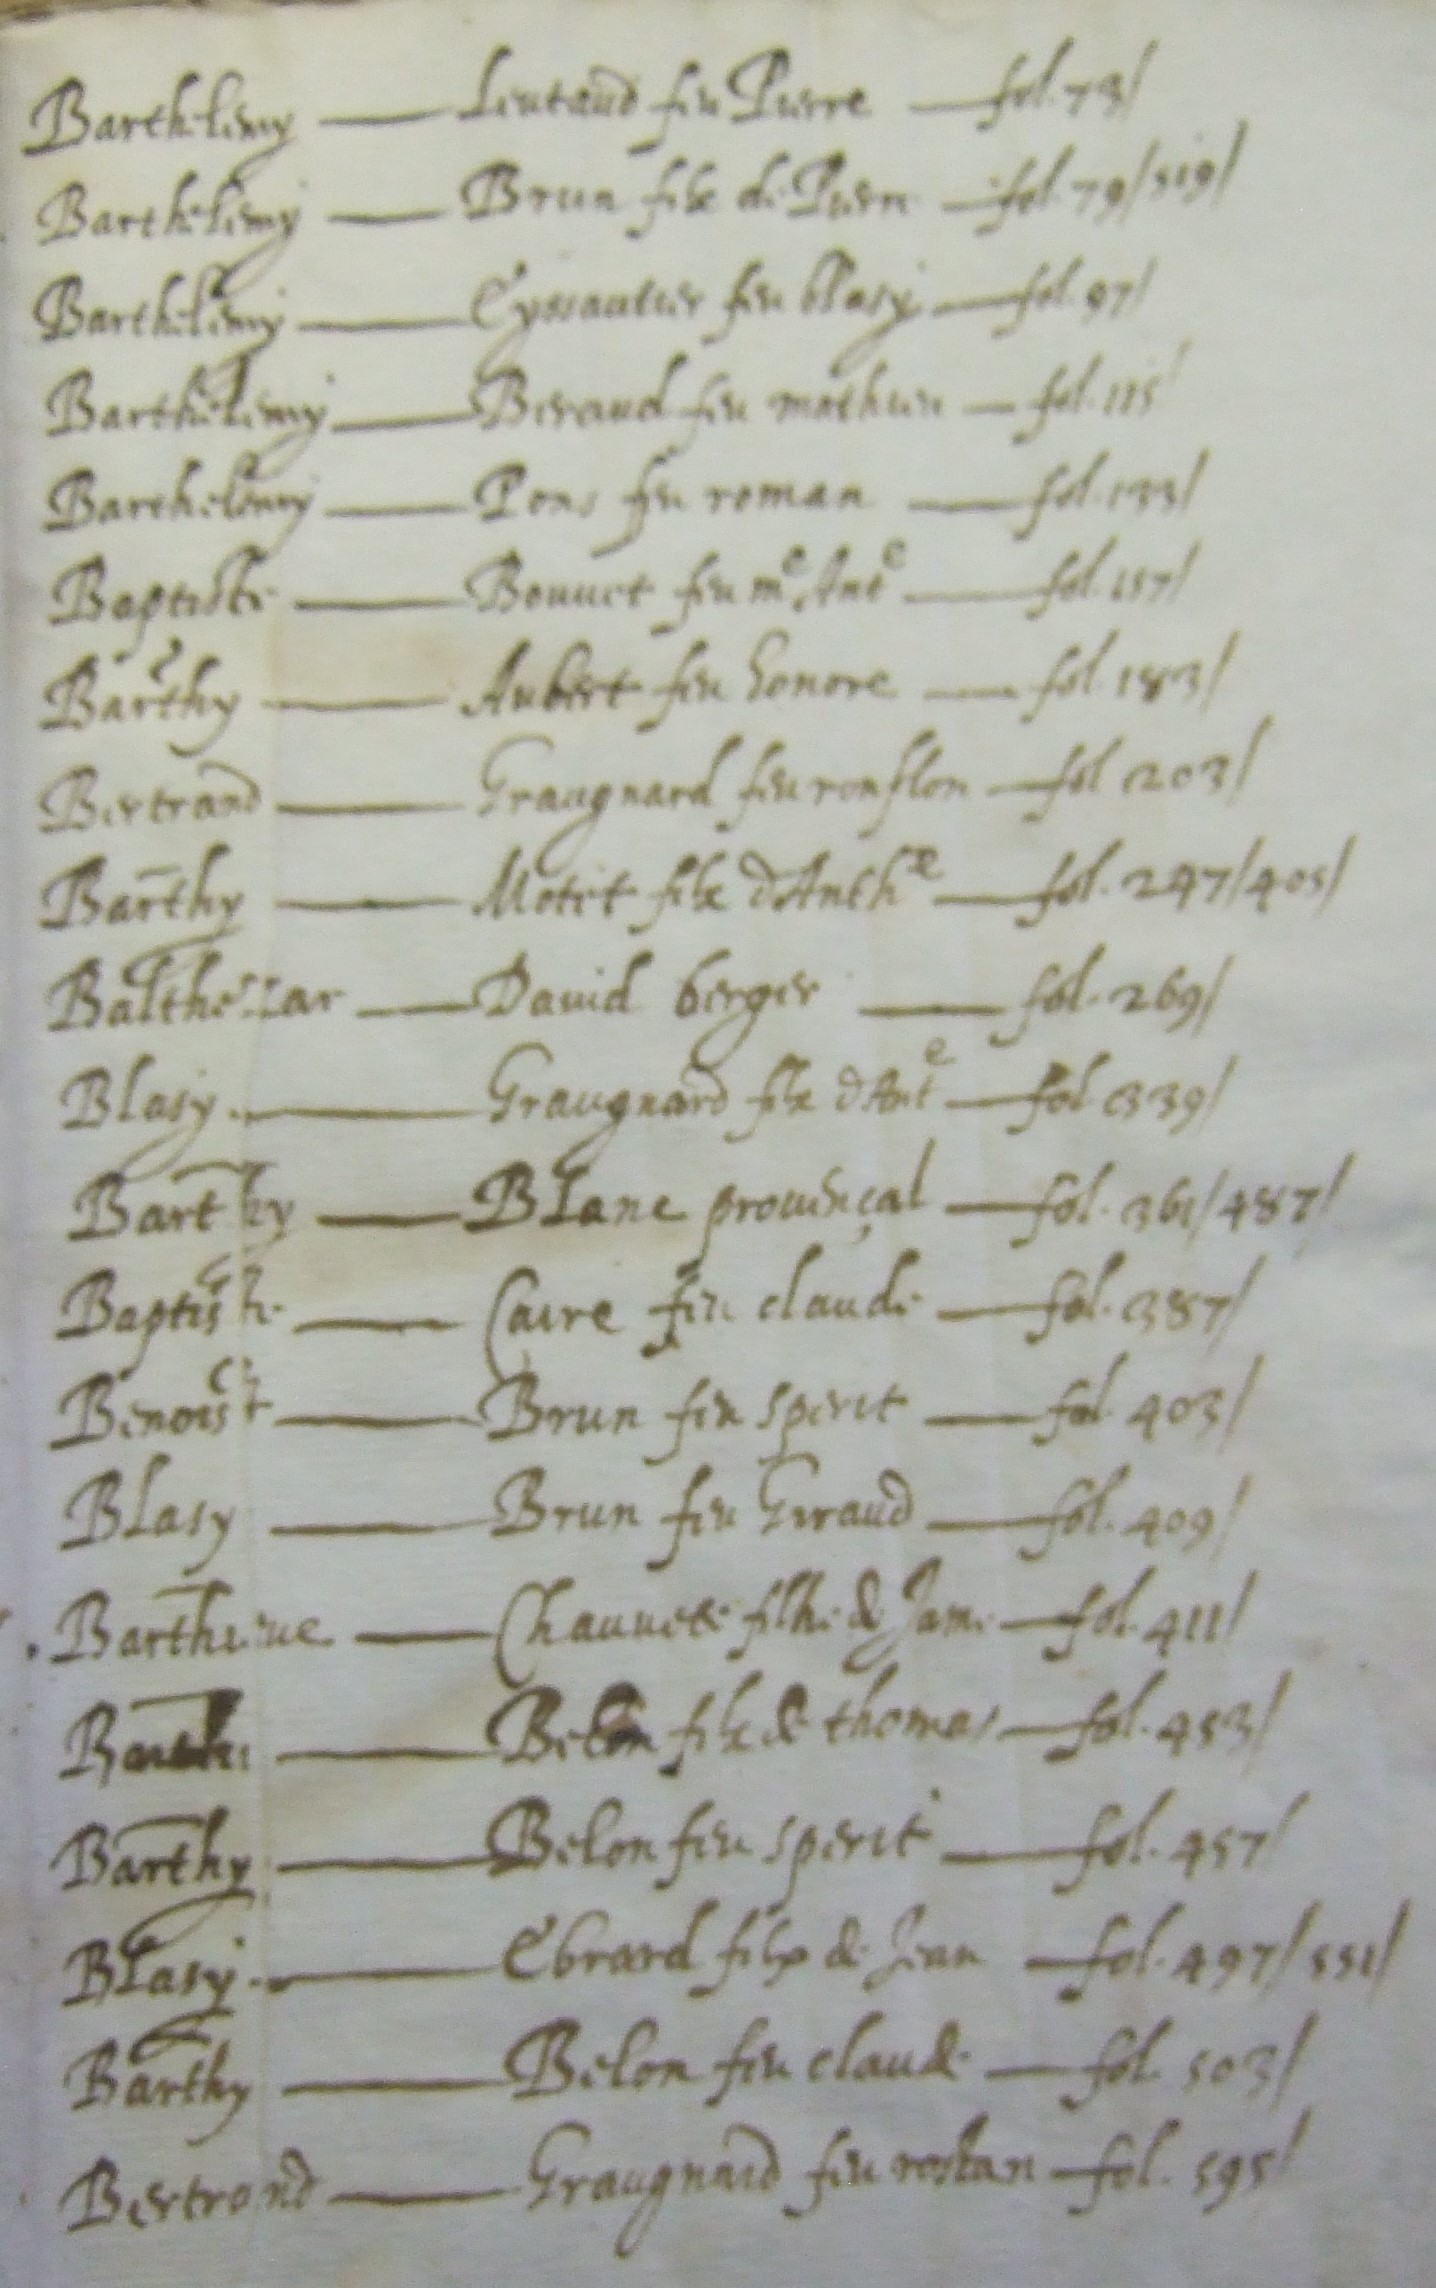 Barthelemy — Lieutaud feu Pierre — fol. 73/
Barthelemy — Brun filz de Pierre — fol. 79/519/
Barthelemy — Eyssautier feu blasy — fol. 97/
Barthelemy — Beraud feu mathieu — fol. 115
Barthelemy — Pons feu roman — fol. 133/
Baptiste — Bouuet feu me Ante — fol. 157/
Barthy — Aubert feu honore — fol. 183/
Bertrand — Graugnard feu — fol 203/
Barthy — Motet filz d'Anthe — fol. 247/405/
Balthezar — Dauid berger — fol. 269/
Blasy — Graugnard filz d'Ante — fol 339/
Barthy — Blanc prouençal — fol. 361/487/
Baptiste — Caire feu claude — fol. 387/
Benoist — Brun feu sperit — fol. 403/
Blasy — Brun feu Giraud — fol. 409/
— Chauuete filhe de Jame — fol. 411/
— Belon filz de thomas — fol. 453/
Barthy — Belon feu sperit — fol. 457/
Blasy — Ebrard filz de Jean — fol. 497/551/
Barthy — Belon feu claude — fol. 503/
Bertrand — Graugnard feu rostan — fol. 595/